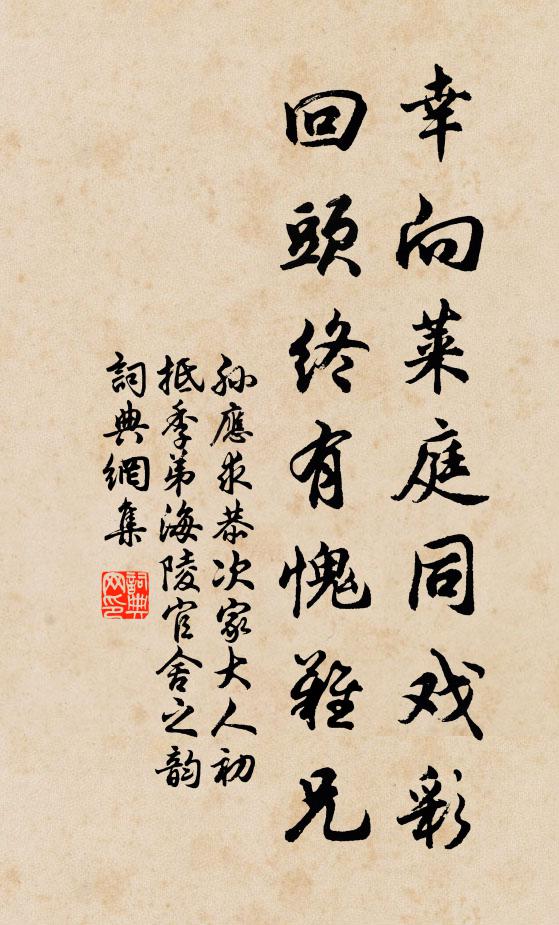 幸向莱庭同戏彩
回頭终有愧難兄
孙應求恭次家大人初
抵季弟海陵官舍之韵
詞典網集
詞典网印